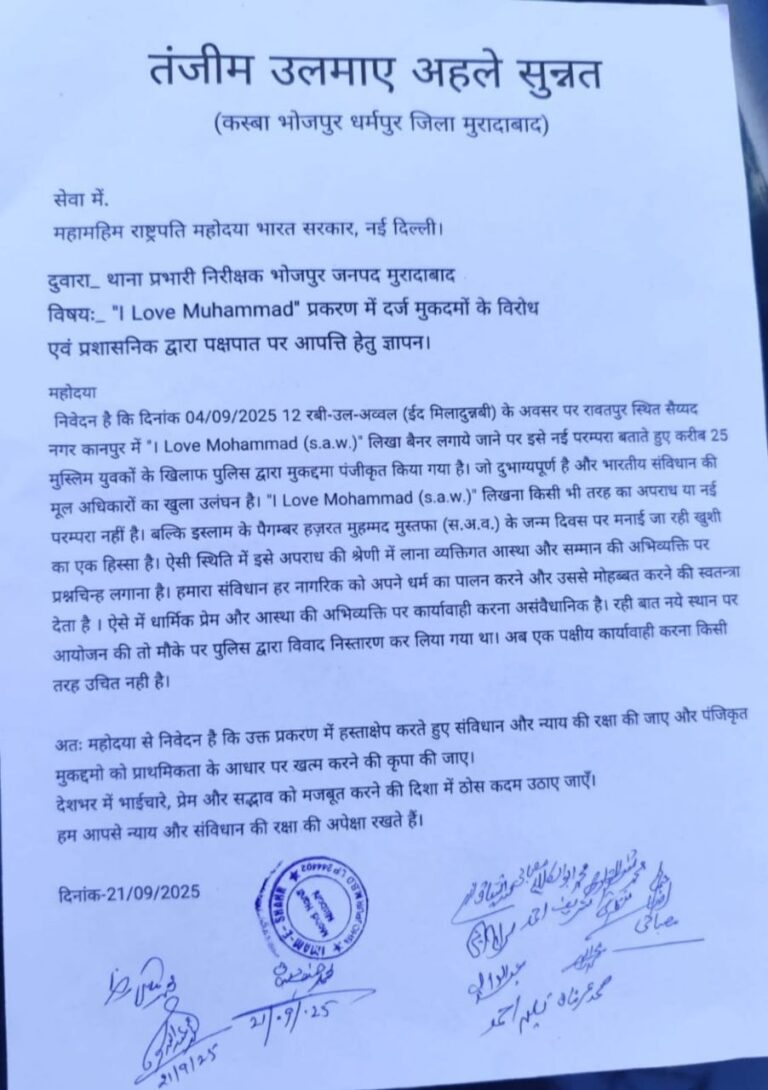 तंजीम उलमाए अहले सुन्नत
(कस्बा भोजपुर धर्मपुर जिला मुरादाबाद)
सेवा में.
महामहिम राष्ट्रपति महोदया भारत सरकार, नई दिल्ली।
दुवारा_ थाना प्रभारी निरीक्षक भोजपुर जनपद मुरादाबाद
विषयः_ "I Love Muhammad" प्रकरण में दर्ज मुकदमों के विरोध
एवं प्रशासनिक द्वारा पक्षपात पर आपत्ति हेतु ज्ञापन।
महोदया
निवेदन है कि दिनांक 04/09/2025 12 रबी-उल-अव्वल (ईद मिलादुन्नबी) के अवसर पर रावतपुर स्थित सैय्यद
नगर कानपुर में "I Love Mohammad (s.a.w.)" लिखा बैनर लगाये जाने पर इसे नई परम्परा बताते हुए करीब 25
मुस्लिम युवकों के खिलाफ पुलिस द्वारा मुकद्दमा पंजीकृत किया गया है। जो दुभाग्यपूर्ण है और भारतीय संविधान की
मूल अधिकारों का खुला उलंघन है। "I Love Mohammad (s.a.w.)" लिखना किसी भी तरह का अपराध या नई
परम्परा नहीं है। बल्कि इस्लाम के पैगम्बर हज़रत मुहम्मद मुस्तफा (स.अ.व.) के जन्म दिवस पर मनाई जा रही खुशी
का एक हिस्सा है। ऐसी स्थिति में इसे अपराध की श्रेणी में लाना व्यक्तिगत आस्था और सम्मान की अभिव्यक्ति पर
प्रश्नचिन्ह लगाना है। हमारा संविधान हर नागरिक को अपने धर्म का पालन करने और उससे मोहब्बत करने की स्वतन्त्रा
देता है । ऐसे में धार्मिक प्रेम और आस्था की अभिव्यक्ति पर कार्यावाही करना असंवैधानिक है। रही बात नये स्थान पर
आयोजन की तो मौके पर पुलिस द्वारा विवाद निस्तारण कर लिया गया था। अब एक पक्षीय कार्यावाही करना किसी
तरह उचित नही है।
अतः महोदया से निवेदन है कि उक्त प्रकरण में हस्ताक्षेप करते हुए संविधान और न्याय की रक्षा की जाए और पंजिकृत
मुकद्दमो को प्राथमिकता के आधार पर खत्म करने की कृपा की जाए।
देशभर में भाईचारे, प्रेम और सद्भाव को मजबूत करने की दिशा में ठोस कदम उठाए जाएँ।
हम आपसे न्याय और संविधान की रक्षा की अपेक्षा रखते हैं।
दिनांक-21/09/2025
IMAM-E-SHAHR
21/9/25
21/9/25